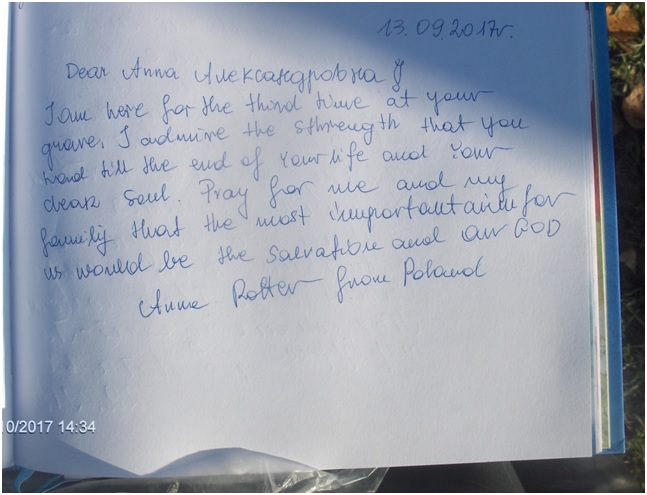 13.09.2017г.
Dear Anna Александровна!
I am here for the third time at your
grave. I admire the sthrength that you
haad till the end of Your life and Your
clear soul. Pray for me and my
family that the most important aim for
us would be the salvation and our GOD
Anna Rotter from Poland
0/2017 14:34